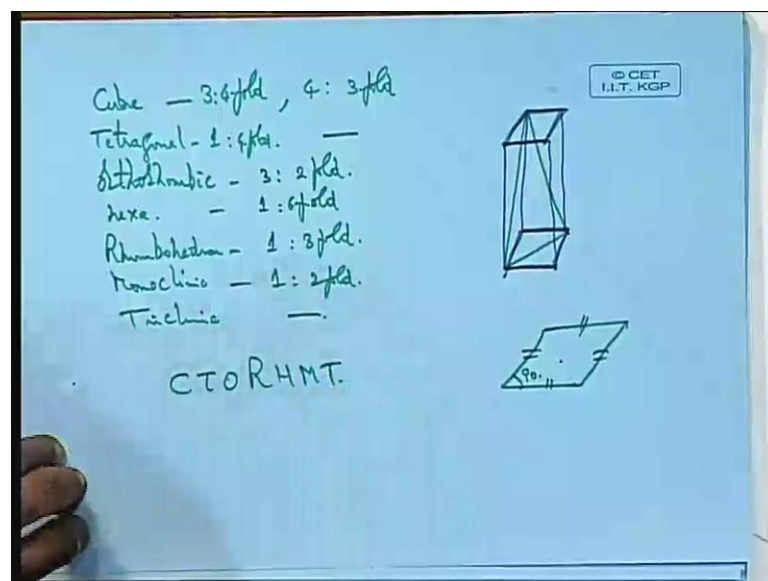 Cube — 3:4fold, 4: 3fold
© CET
I.I.T. KGP
Tetragonal - 1: 4fold. —
Orthorhombic - 3: 2fold.
hexa. - 1:6fold
Rhombohedron - 1: 3fold.
Monoclinic — 1: 2fold.
Triclinic —.
CTORHMT.
90.